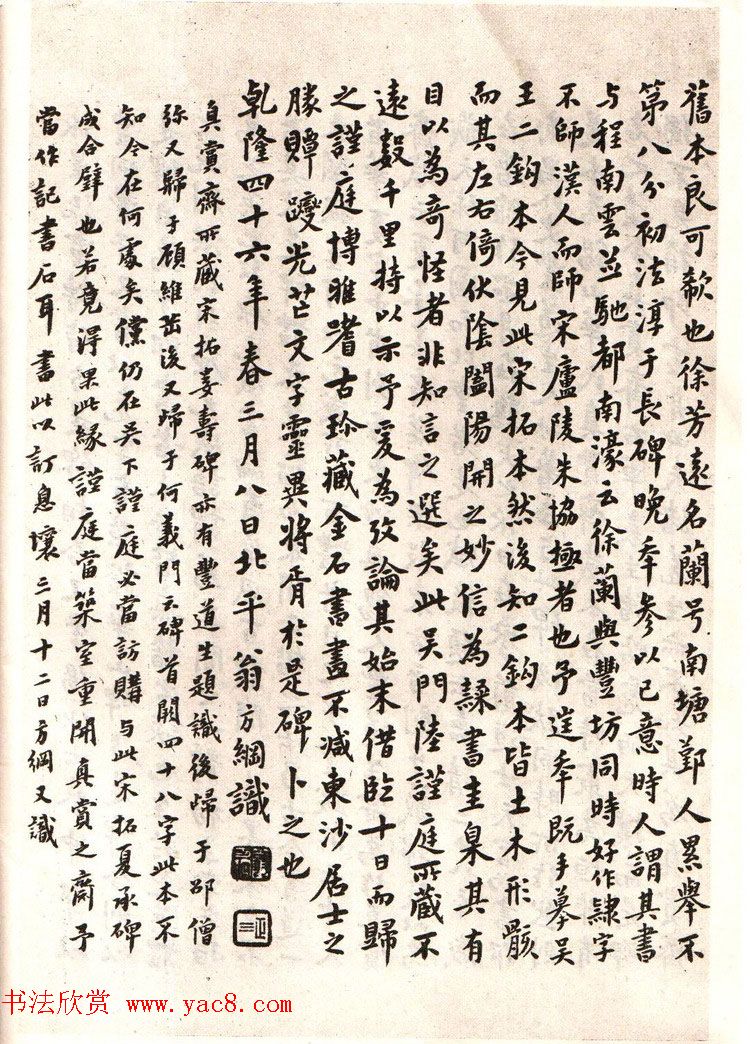 舊本良可欷也徐芳遠名蘭号南塘鄞人累舉不
第八分初法淳于長碑晚年參以己意時人謂其書
与程南雲並馳都南濠云徐蘭與豐坊同時好作隸字
不師漢人而師宋廬陵朱協極者也予逆年既手摹吴
王二鈎本今見此宋拓本然後知二鈎本皆土木形骸
而其左右倚伏陰闔陽開之妙信為隸書圭臬其有
目以為奇怪者非知言之選矣此吴門陸謹庭所藏不
遠數千里持以示予爰為攷論其始末借臨十日而歸
之謹庭博雅嗜古珎藏金石書畫不减東沙居士之
勝賱躞光芒文字靈異將胥於是碑卜之也
乾隆四十六年春三月八日北平翁方綱識
真賞齋所藏宋拓婁壽碑亦有豐道生題識後歸于邵僧
弥又歸于顾維岳後又歸于何義門云碑首闕四十八字此本不
知今在何處矣儻仍在吴下謹庭必當訪購与此宋拓夏承碑
成合璧也若竟淂果此緣謹庭當築室重開真賞之齋予
當作記書石耳書此以訂息壤三月十二日方綱又識
书法欣赏 www.yac8.com